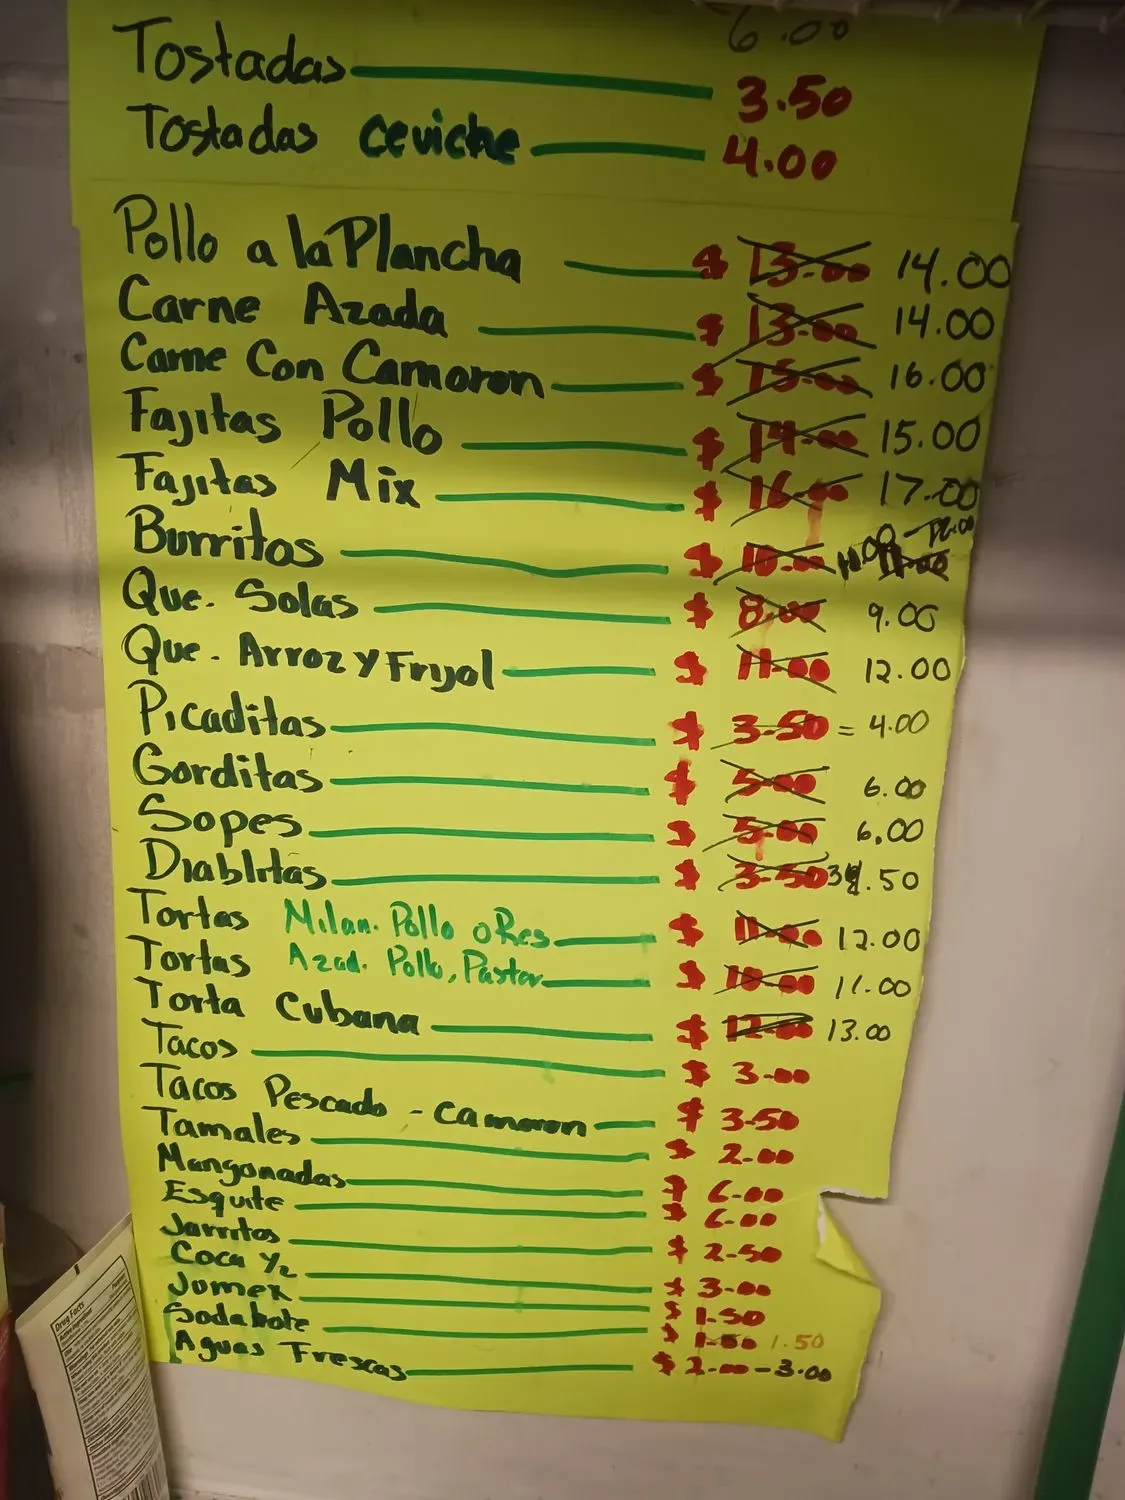 6.00
Tostadas 3.50
Tostadas ceviche 4.00
Pollo a la Plancha $ 13.00 14.00
Carne Azada $ 13.00 14.00
Carne Con Camoron $ 15.00 16.00
Fajitas Pollo $ 14.00 15.00
Fajitas Mix $ 16.00 17.00
Burritos $ 10.00 10.00 - 12.00 11.00
Que. Solas $ 8.00 9.00
Que. Arroz y Frijol $ 11.00 12.00
Picaditas $ 3.50 = 4.00
Gorditas $ 5.00 6.00
Sopes $ 5.00 6.00
Diablitas $ 3.50 .50
Tortas Milan. Pollo o Res $ 11.00 12.00
Tortas Azad. Pollo, Pastor $ 10.00 11.00
Torta Cubana $ 12.00 13.00
Tacos $ 3.00
Tacos Pescado - camoron $ 3.50
Tamales $ 2.00
Mangonadas $ 6.00
Esquite $ 6.00
Jarritos $ 2.50
Coca 1/2 $ 3.00
Jumex $ 1.50
Soda bote $ 1.50 1.50
Aguas Frescas $ 2.00 - 3.00
Drug Facts